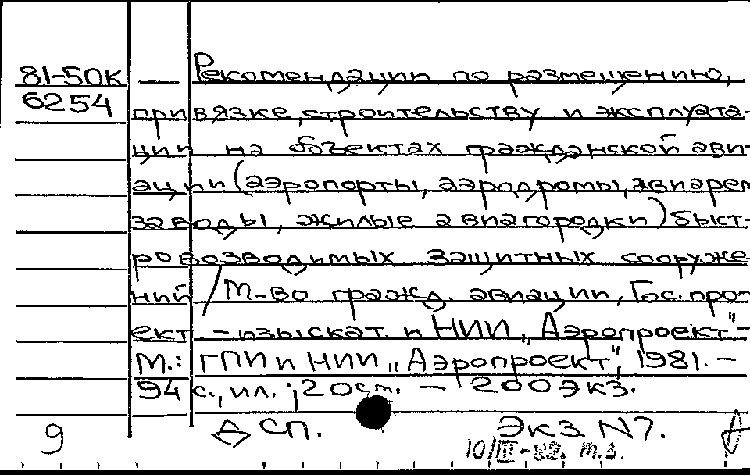 81-50К — Рекомендации по размещению,
6254 привязке, строительству и эксплуата-
ции на объектах гражданской ави-
ации (аэропорты, аэродромы, авиарем
заводы, жилые авиагородки) быст-
ровозводимых защитных сооруже
ний / М-во гражд. авиации, Гос. про-
ект. - изыскат. и НИИ „Аэропроект" -
М.: ГПИ и НИИ „Аэропроект", 1981. -
94 с., ил.; 20 см. — 200 экз.
9 ДСП. Экз N7.
10/III-82.